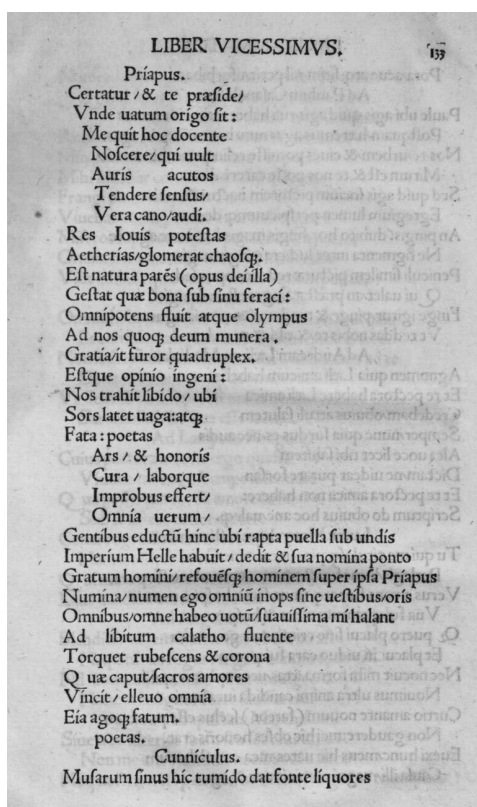 LIBER VICESSIMVS. 133
Príapus.
Certatur / & te præside /
Vnde uatum origo sit :
Me quit hoc docente
Noscere / quí uult
Aurís acutos
Tendere sensus /
Vera cano / audí.
Res Iouís potestas
Aetherías / glomerat chaosq;.
Est natura parẽs ( opus deí illa )
Gestat quæ bona sub sinu ferací :
Omnípotens fluít atque olympus
Ad nos quoq; deum munera .
Gratía / ít furor quadruplex.
Estque opínío íngení :
Nos trahít libído / ubí
Sors latet uaga : atq;
Fata : poetas
Ars / & honorís
Cura / laborque
Improbus effert /
Omnía uerum /
Gentibus eductũ hinc ubí rapta puella sub undis
Imperíum Helle habuít / dedít & sua nomína ponto
Gratum homíní / refouẽsq; homínem super ípsa Príapus
Numína / numen ego omníũ ínops sínc uestíbus / orís
Omníbus / omne habeo uotũ / suauíssíma mí halant
Ad libítum calatho fluente
Torquet rubescens & corona
Q uæ caput / sacros amores
Víncít / elleuo omnía
Eía agoq; fatum.
poetas.
Cunniculus.
Musarum sinus híc tumído dat fonte líquores